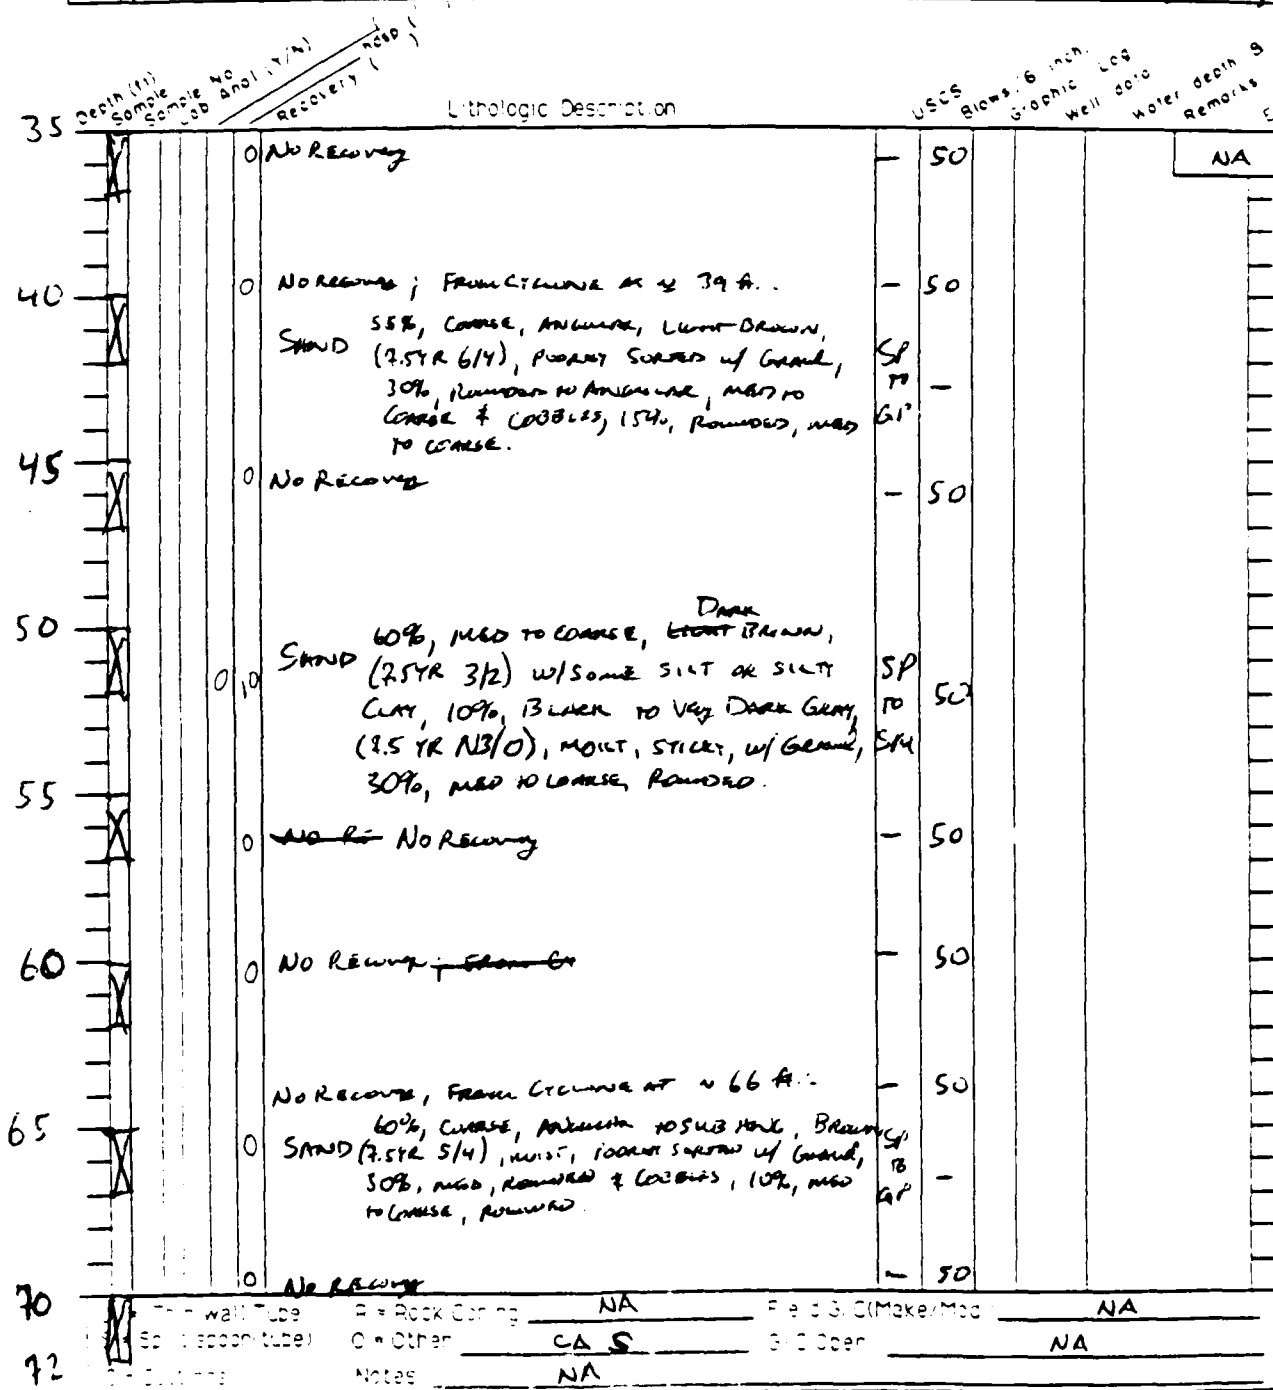 Depth (ft)
Sample
Sample No
Lab Anal (Y/N)
Recovery (
Lithologic Description
USCS
Blows/6 inch
Graphic Log
Well data
Water depth
Remarks
35
0 No Recovery - 50 NA
40
0 No Recovery ; From Cyclone at ~ 39 ft. - 50
SAND 55%, Coarse, Angular, Light Brown,
(7.5YR 6/4), Poorly Sorted w/ Gravel, SP
30%, Rounded to Angular, Med to to -
Coarse & Cobbles, 15%, Rounded, Med GP
to Coarse.
45
0 No Recovery - 50
50
Dark
SAND 60%, Med to Coarse, Light Brown,
(7.5YR 3/2) w/ Some Silt or Silty SP
Clay, 10%, Black to Very Dark Gray, to 50
(7.5 YR N3/0), Moist, Sticky, w/ Gravel, SM
30%, Med to Coarse, Rounded.
55
0 No Re No Recovery - 50
60
0 No Recovery ; From Cy - 50
No Recovery, From Cyclone at ~ 66 ft. - 50
65
0 SAND 60%, Coarse, Angular to Sub Ang, Brown SP
(7.5YR 5/4), Moist, Poorly Sorted w/ Gravel, to
30%, Med, Rounded & Cobbles, 10%, Med - GP
to Coarse, Rounded.
0 No Recovery - 50
70
Thin Wall Tube R = Rock Coring NA Field G.C(Make/Mod NA
Split spoon(tube) O = Other CA S G.C Oper NA
72
Notes NA